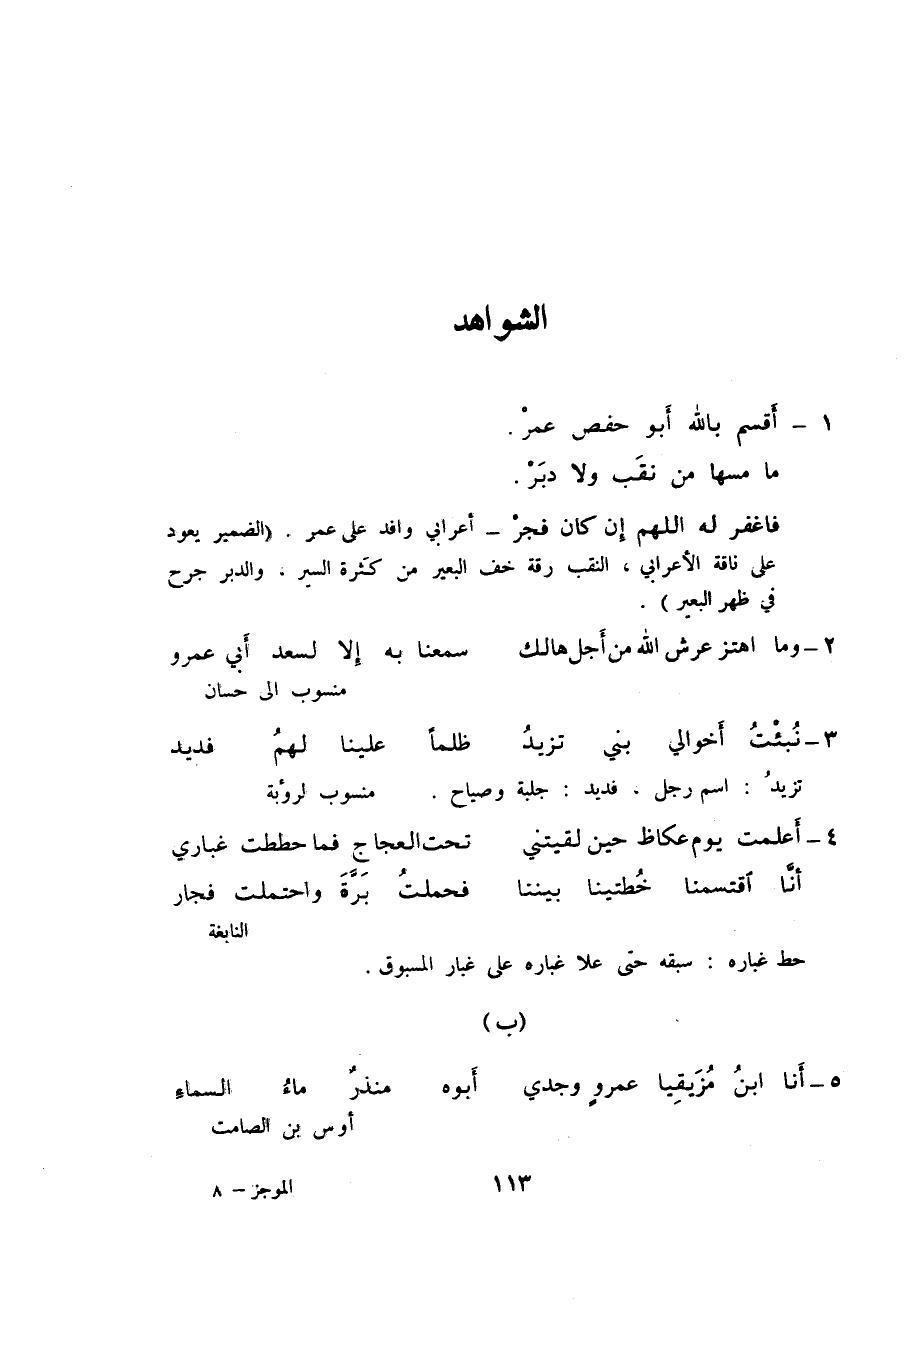 الشواهد
١ – أَقسم بالله أَبو حفص عمرْ .
ما مسها من نقَب ولا دبَرْ .
فاغفر له اللهم إن كان فجرْ – أعرابي وافد على عمر . (الضمير يعود
على ناقة الأعرابي ، النقب رقة خف البعير من كثرة السير . والدبر جرح
في ظهر البعير ) .
٢ – وما اهتز عرش الله من أَجل هالك سمعنا به إلا لسعد أَبي عمرو
منسوب الى حسان
٣ – نُبئْتُ أَخوالي بني تزيدُ ظلماً علينا لهمُ فديد
تزيدُ : اسم رجل . فديد : جلبة وصياح . منسوب لرؤبة
٤ – أَعلمت يوم عكاظ حين لقيتني تحت العجاج فما حططت غباري
أنَّا ٱقتسمنا خُطتينا بيننا فحملتُ بَرَّةَ واحتملت فجار
النابغة
حط غباره : سبقه حتى علا غباره على غبار المسبوق .
(ب)
٥ – أَنا ابنُ مُزَيقِيا عمرٍو وجدي أَبوه منذرٌ ماءُ السماءِ
أوس بن الصامت
١١٣
الموجز – ٨